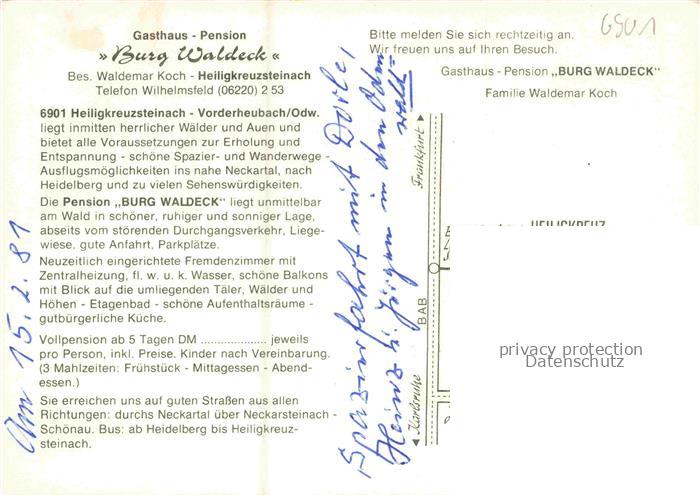 Gasthaus - Pension
» Burg Waldeck «
Bes. Waldemar Koch - Heiligkreuzsteinach
Telefon Wilhelmsfeld (06220) 2 53
6901 Heiligkreuzsteinach - Vorderheubach/Odw.
liegt inmitten herrlicher Wälder und Auen und
bietet alle Voraussetzungen zur Erholung und
Entspannung - schöne Spazier- und Wanderwege -
Ausflugsmöglichkeiten ins nahe Neckartal, nach
Heidelberg und zu vielen Sehenswürdigkeiten.
Die Pension „BURG WALDECK“ liegt unmittelbar
am Wald in schöner, ruhiger und sonniger Lage,
abseits vom störenden Durchgangsverkehr, Liege-
wiese, gute Anfahrt, Parkplätze.
Neuzeitlich eingerichtete Fremdenzimmer mit
Zentralheizung, fl. w. u. k. Wasser, schöne Balkons
mit Blick auf die umliegenden Täler, Wälder und
Höhen - Etagenbad - schöne Aufenthaltsräume -
gutbürgerliche Küche.
Vollpension ab 5 Tagen DM .................... jeweils
pro Person, inkl. Preise. Kinder nach Vereinbarung.
(3 Mahlzeiten: Frühstück - Mittagessen - Abend-
essen.)
Sie erreichen uns auf guten Straßen aus allen
Richtungen: durchs Neckartal über Neckarsteinach -
Schönau. Bus: ab Heidelberg bis Heiligkreuz-
steinach.
Am 15.2.81
Spazierfahrt mit Dorle,
Heinz u. Jürgen in den Oden
wald
Bitte melden Sie sich rechtzeitig an.
Wir freuen uns auf Ihren Besuch.
Gasthaus - Pension „BURG WALDECK“
Familie Waldemar Koch
6901
Frankfurt
BAB
Karlsruhe
HEILIGKREUZ
privacy protection
Datenschutz